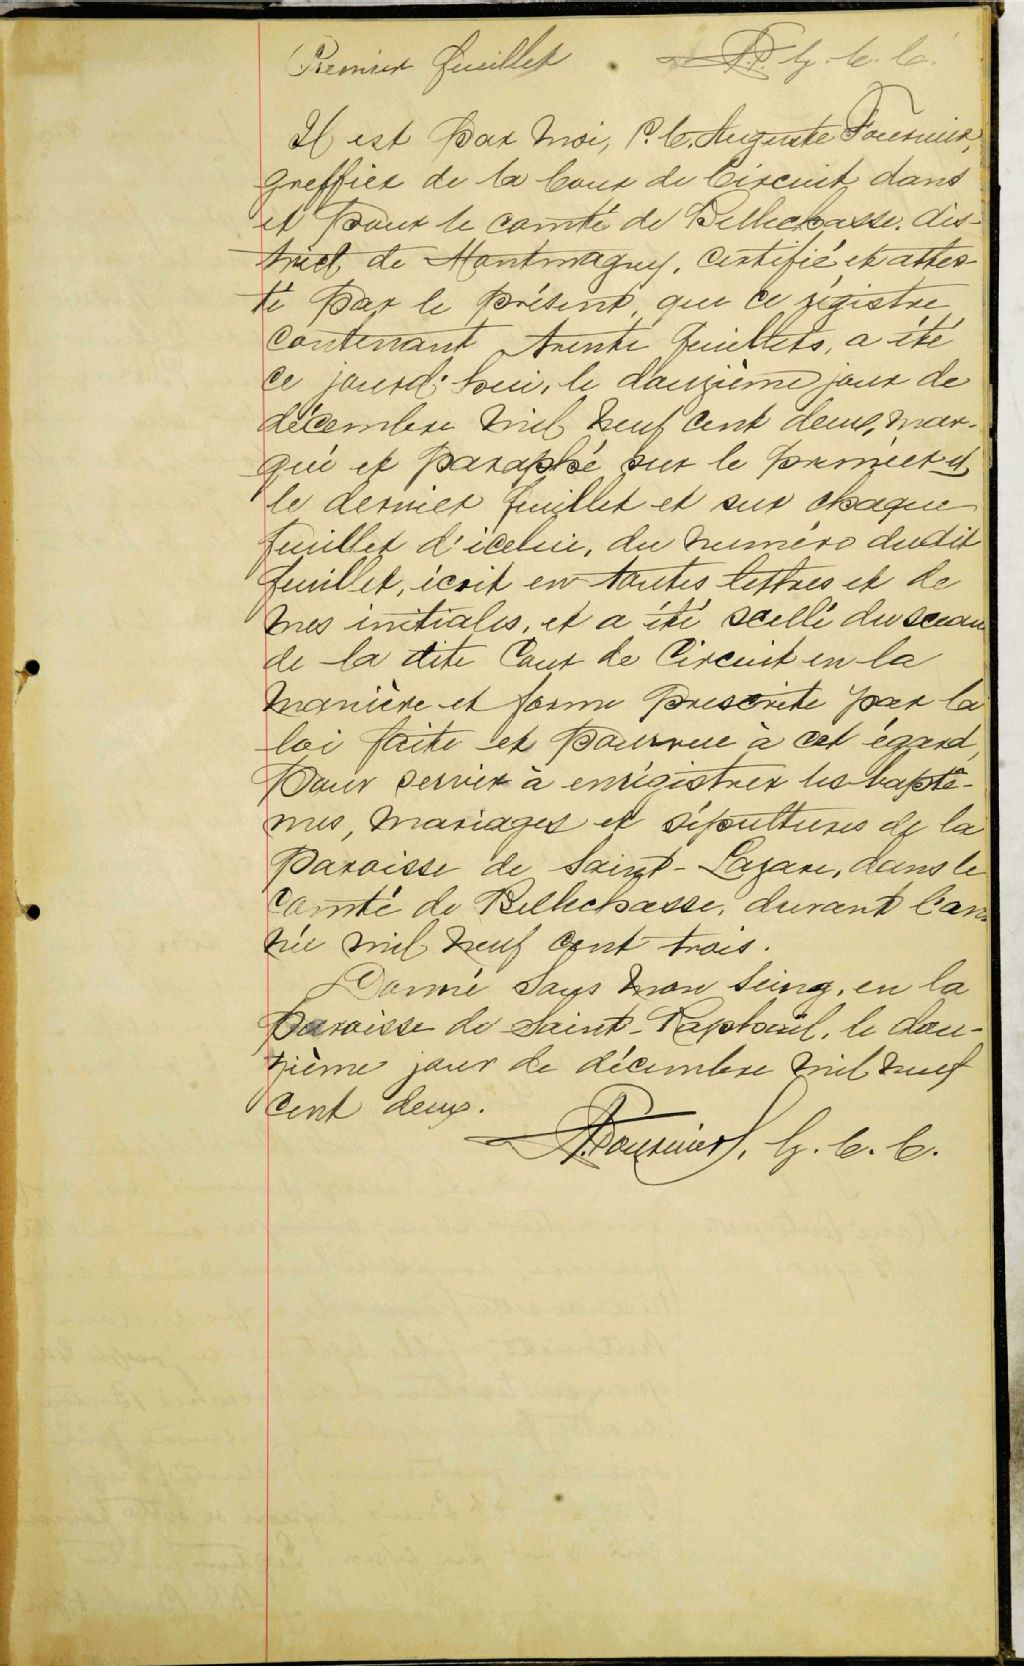 Premier feuillet A.F. G. C. C.
Il est par moi, P. C. Auguste Fournier,
greffier de la Cour de Circuit dans
et pour le comté de Bellechasse, dis-
trict de Montmagny, certifié et attes-
té par le présent, que ce régistre
contenant trente feuillets, a été
ce jourd'hui, le douzième jour de
décembre mil neuf cent deux, mar-
qué et paraphé sur le premier et
le dernier feuillet et sur chaque
feuillet d'icelui, du numéro dudit
feuillet, écrit en toutes lettres et de
mes initiales, et a été scellé du sceau
de la dite Cour de Circuit en la
manière et forme prescrite par la
loi faite et pourvue à cet égard,
pour servir à enrégistrer les baptê-
mes, mariages et sépultures de la
Paroisse de Saint-Lazare, dans le
Comté de Bellechasse, durant l'an-
née mil neuf cent trois.
Donné sous mon seing, en la
Paroisse de Saint-Raphaël, le dou-
zième jour de décembre mil neuf
cent deux.
A. Fournier, G. C. C.